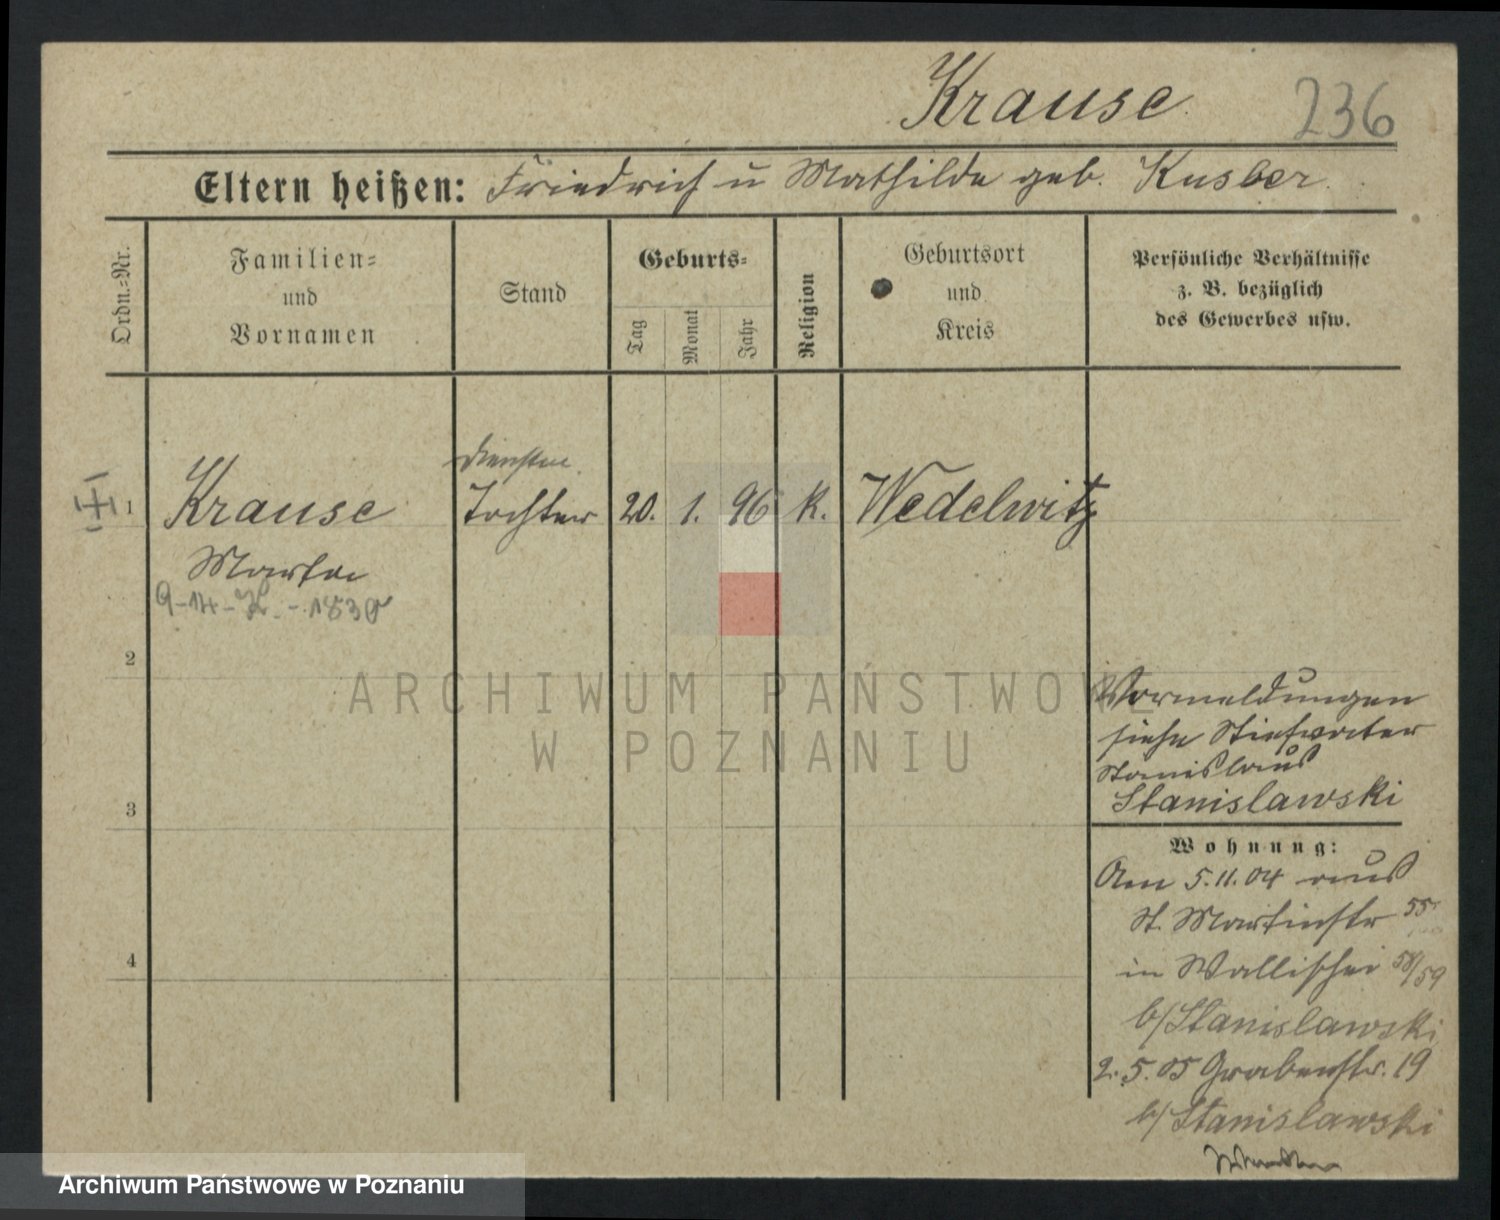 Krause
236
Eltern heißen: Friedrich u Mathilde geb. Kusber
Ordn.-Nr.
Familien-
und
Vornamen
Stand
Geburts-
Tag
Monat
Jahr
Religion
Geburtsort
und
Kreis
Persönliche Verhältnisse
z. B. bezüglich
des Gewerbes usw.
1
Krause
Martha
Tochter
20. 1. 96
k.
Wedelwitz
2
Vormeldungen
siehe Stiefvater
Stanislaus
Stanislawski
3
Wohnung:
Am 5.11.04 aus
St. Martinstr 55
in Wallischei 58/59
b/Stanislawski
2.5.05 Grabenstr. 19
b/Stanislawski
4
ARCHIWUM PAŃSTWOWE
W POZNANIU
Archiwum Państwowe w Poznaniu